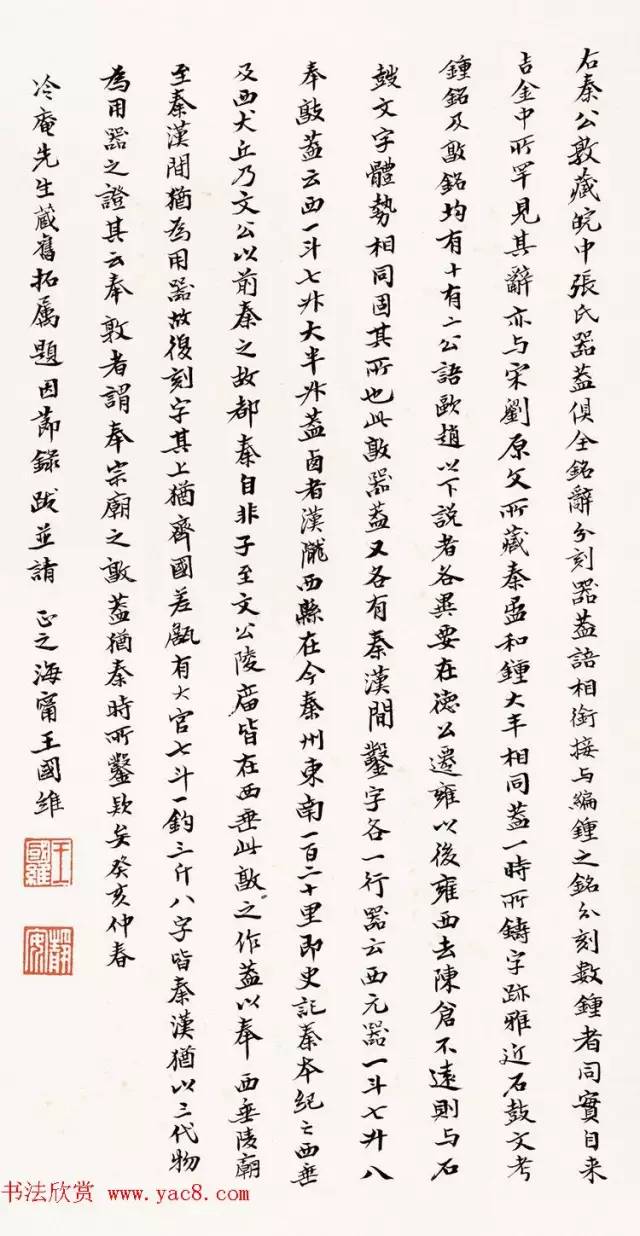 右秦公敦藏皖中張氏器蓋俱全銘辭分刻器蓋語相銜接与編鍾之銘分刻數鍾者同實自来
吉金中所罕見其辭亦与宋劉原父所藏秦盄和鍾大半相同蓋一時所鑄字跡雅近石鼓文考
鍾銘及敦銘均有十有二公語歐趙以下説者各異要在德公遷雍以後雍西去陳倉不遠則与石
鼓文字體勢相同固其所也此敦器蓋又各有秦漢間鑿字各一行器云西元器一斗七升八
奉敦蓋云西一斗七升大半升蓋西者漢隴西縣在今秦州東南一百二十里即史記秦本紀之西垂
及西犬丘乃文公以前秦之故都秦自非子至文公陵廟皆在西垂此敦之作蓋以奉西垂陵廟
至秦漢間猶為用器故復刻字其上猶齊國差𦉜有大官七斗一鈞三斤八字皆秦漢猶以三代物
為用器之證其云奉敦者謂奉宗廟之敦蓋猶秦時所鑿欵矣癸亥仲春
冷庵先生藏舊拓属題因節錄跋並請 正之海甯王國維
王國維
靜安
书法欣赏 www.yac8.com